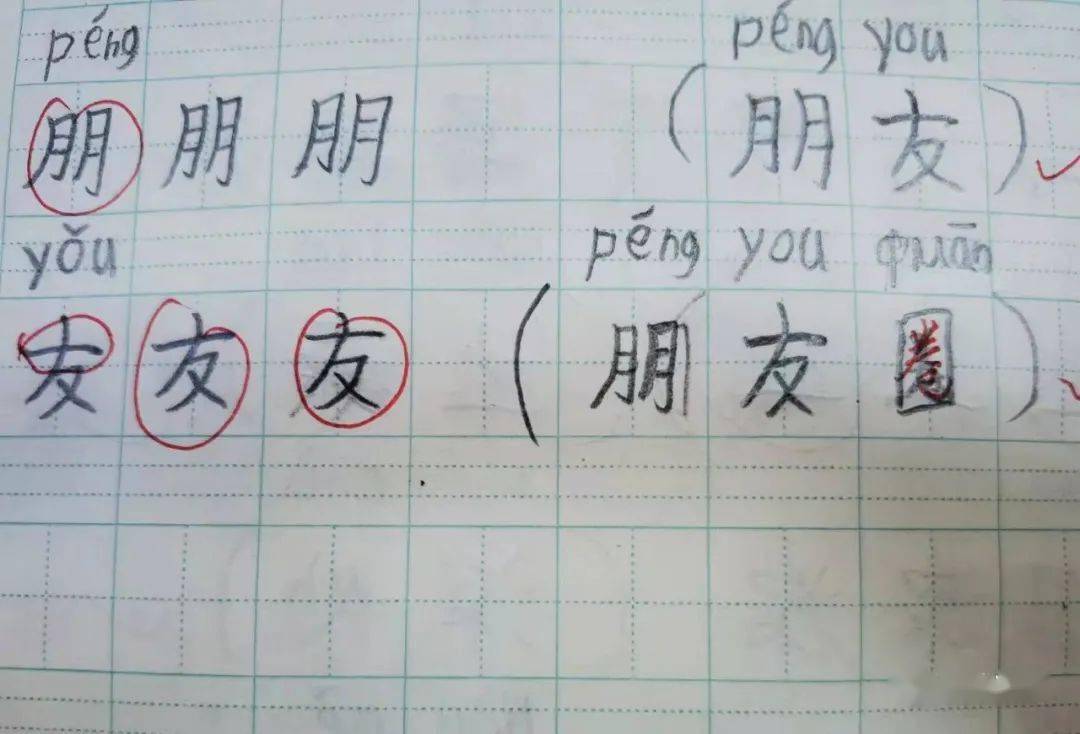 péng péng you
朋 朋 朋 (朋友)
yǒu péng you quān
友 友 友 (朋友圈)